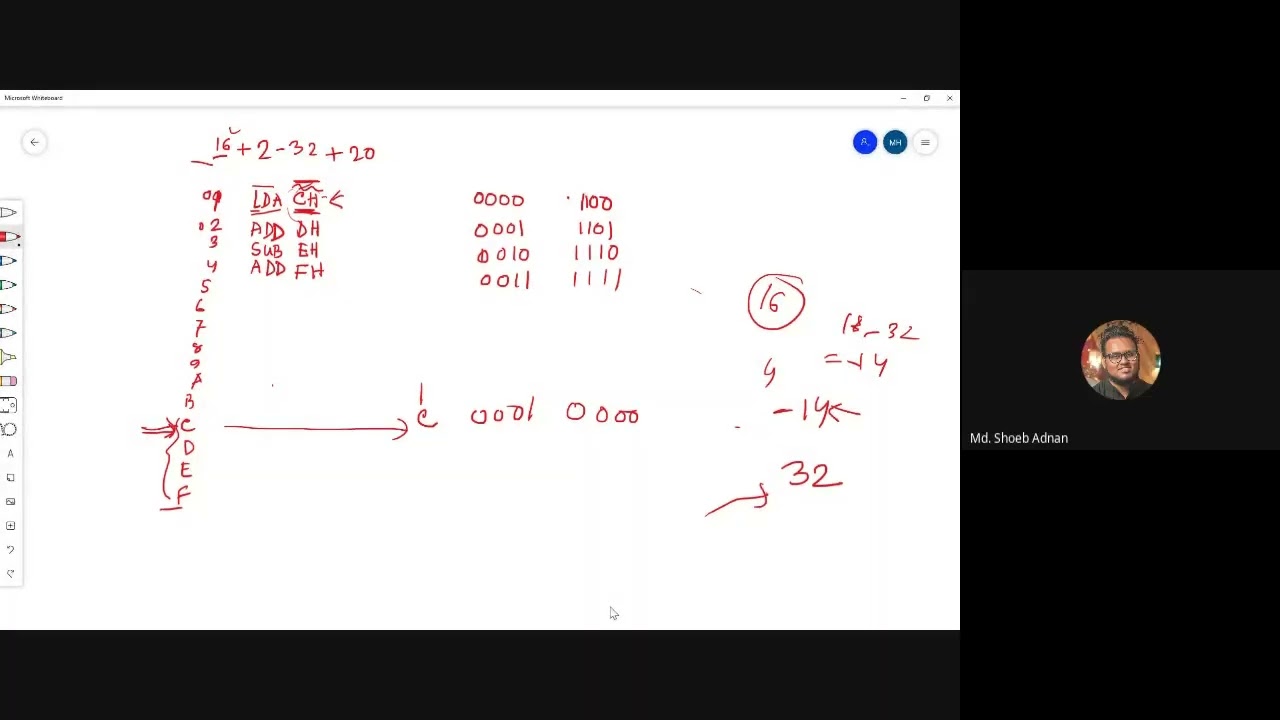 Microsoft Whiteboard
MH
16 + 2 - 32 + 20
01 LDA CH 0000 1100
02 ADD DH 0001 1101
3 SUB EH 0010 1110
4 ADD FH 0011 1111
5
6
7
8
9
A
B
C C 0001 0000
D
E
F
16
18 - 32
= -14
-14
32
Md. Shoeb Adnan